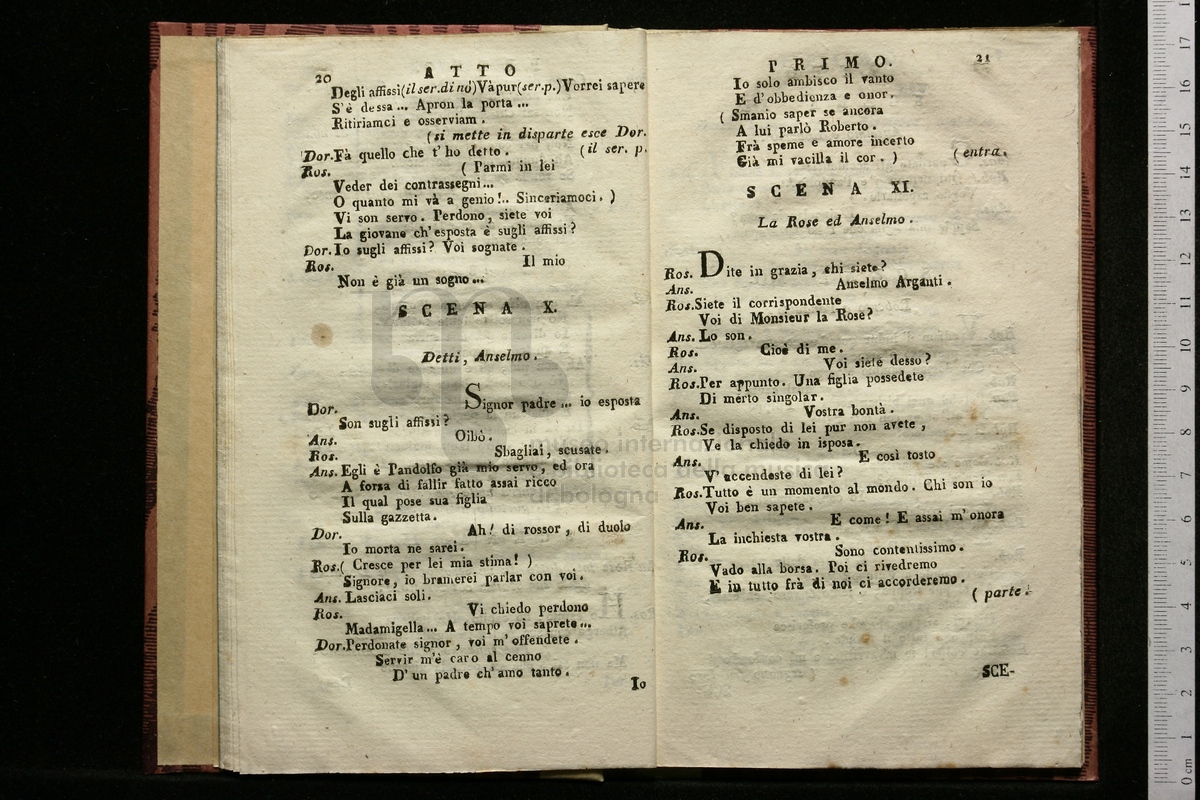 20
A T T O
Degli affissi (il ser. di nò) Và pur (ser. p.) Vorrei sapere
S'è dessa ... Apron la porta ...
Ritiriamci e osserviam .
( si mette in disparte esce Dor.
Dor. Fà quello che t' ho detto . ( il ser. p.
Ros. ( Parmi in lei
Veder dei contrassegni ...
O quanto mi và a genio !.. Sinceriamoci . )
Vi son servo . Perdono , siete voi
La giovane ch' esposta è sugli affissi ?
Dor. Io sugli affissi ? Voi sognate .
Ros. Il mio
Non è già un sogno ...
S C E N A X.
Detti , Anselmo .
Dor. Signor padre ... io esposta
Son sugli affissi ?
Ans. Oibò .
Ros. Sbagliai , scusate .
Ans. Egli è Pandolfo già mio servo , ed ora
A forza di fallir fatto assai ricco
Il qual pose sua figlia
Sulla gazzetta .
Dor. Ah ! di rossor , di duolo
Io morta ne sarei .
Ros. ( Cresce per lei mia stima ! )
Signore , io bramerei parlar con voi .
Ans. Lasciaci soli .
Ros. Vi chiedo perdono
Madamigella ... A tempo voi saprete ...
Dor. Perdonate signor , voi m' offendete .
Servir m'è caro al cenno
D' un padre ch' amo tanto .
Io
P R I M O .
21
Io solo ambisco il vanto
E d' obbedienza e onor .
( Smanio saper se ancora
A lui parlò Roberto .
Frà speme e amore incerto
Già mi vacilla il cor . ) ( entra .
S C E N A XI.
La Rose ed Anselmo .
Ros. Dite in grazia , chi siete ?
Ans. Anselmo Arganti .
Ros. Siete il corrispondente
Voi di Monsieur la Rose ?
Ans. Lo son .
Ros. Cioè di me .
Ans. Voi siete desso ?
Ros. Per appunto . Una figlia possedete
Di merto singolar .
Ans. Vostra bontà .
Ros. Se disposto di lei pur non avete ,
Ve la chiedo in isposa .
Ans. E così tosto
V' accendeste di lei ?
Ros. Tutto è un momento al mondo . Chi son io
Voi ben sapete .
Ans. E come ! E assai m' onora
La inchiesta vostra .
Ros. Sono contentissimo .
Vado alla borsa . Poi ci rivedremo
E in tutto frà di noi ci accorderemo .
( parte .
SCE-
museo internazionale
e biblioteca della musica
di bologna
0 cm 1 2 3 4 5 6 7 8 9 10 11 12 13 14 15 16 17